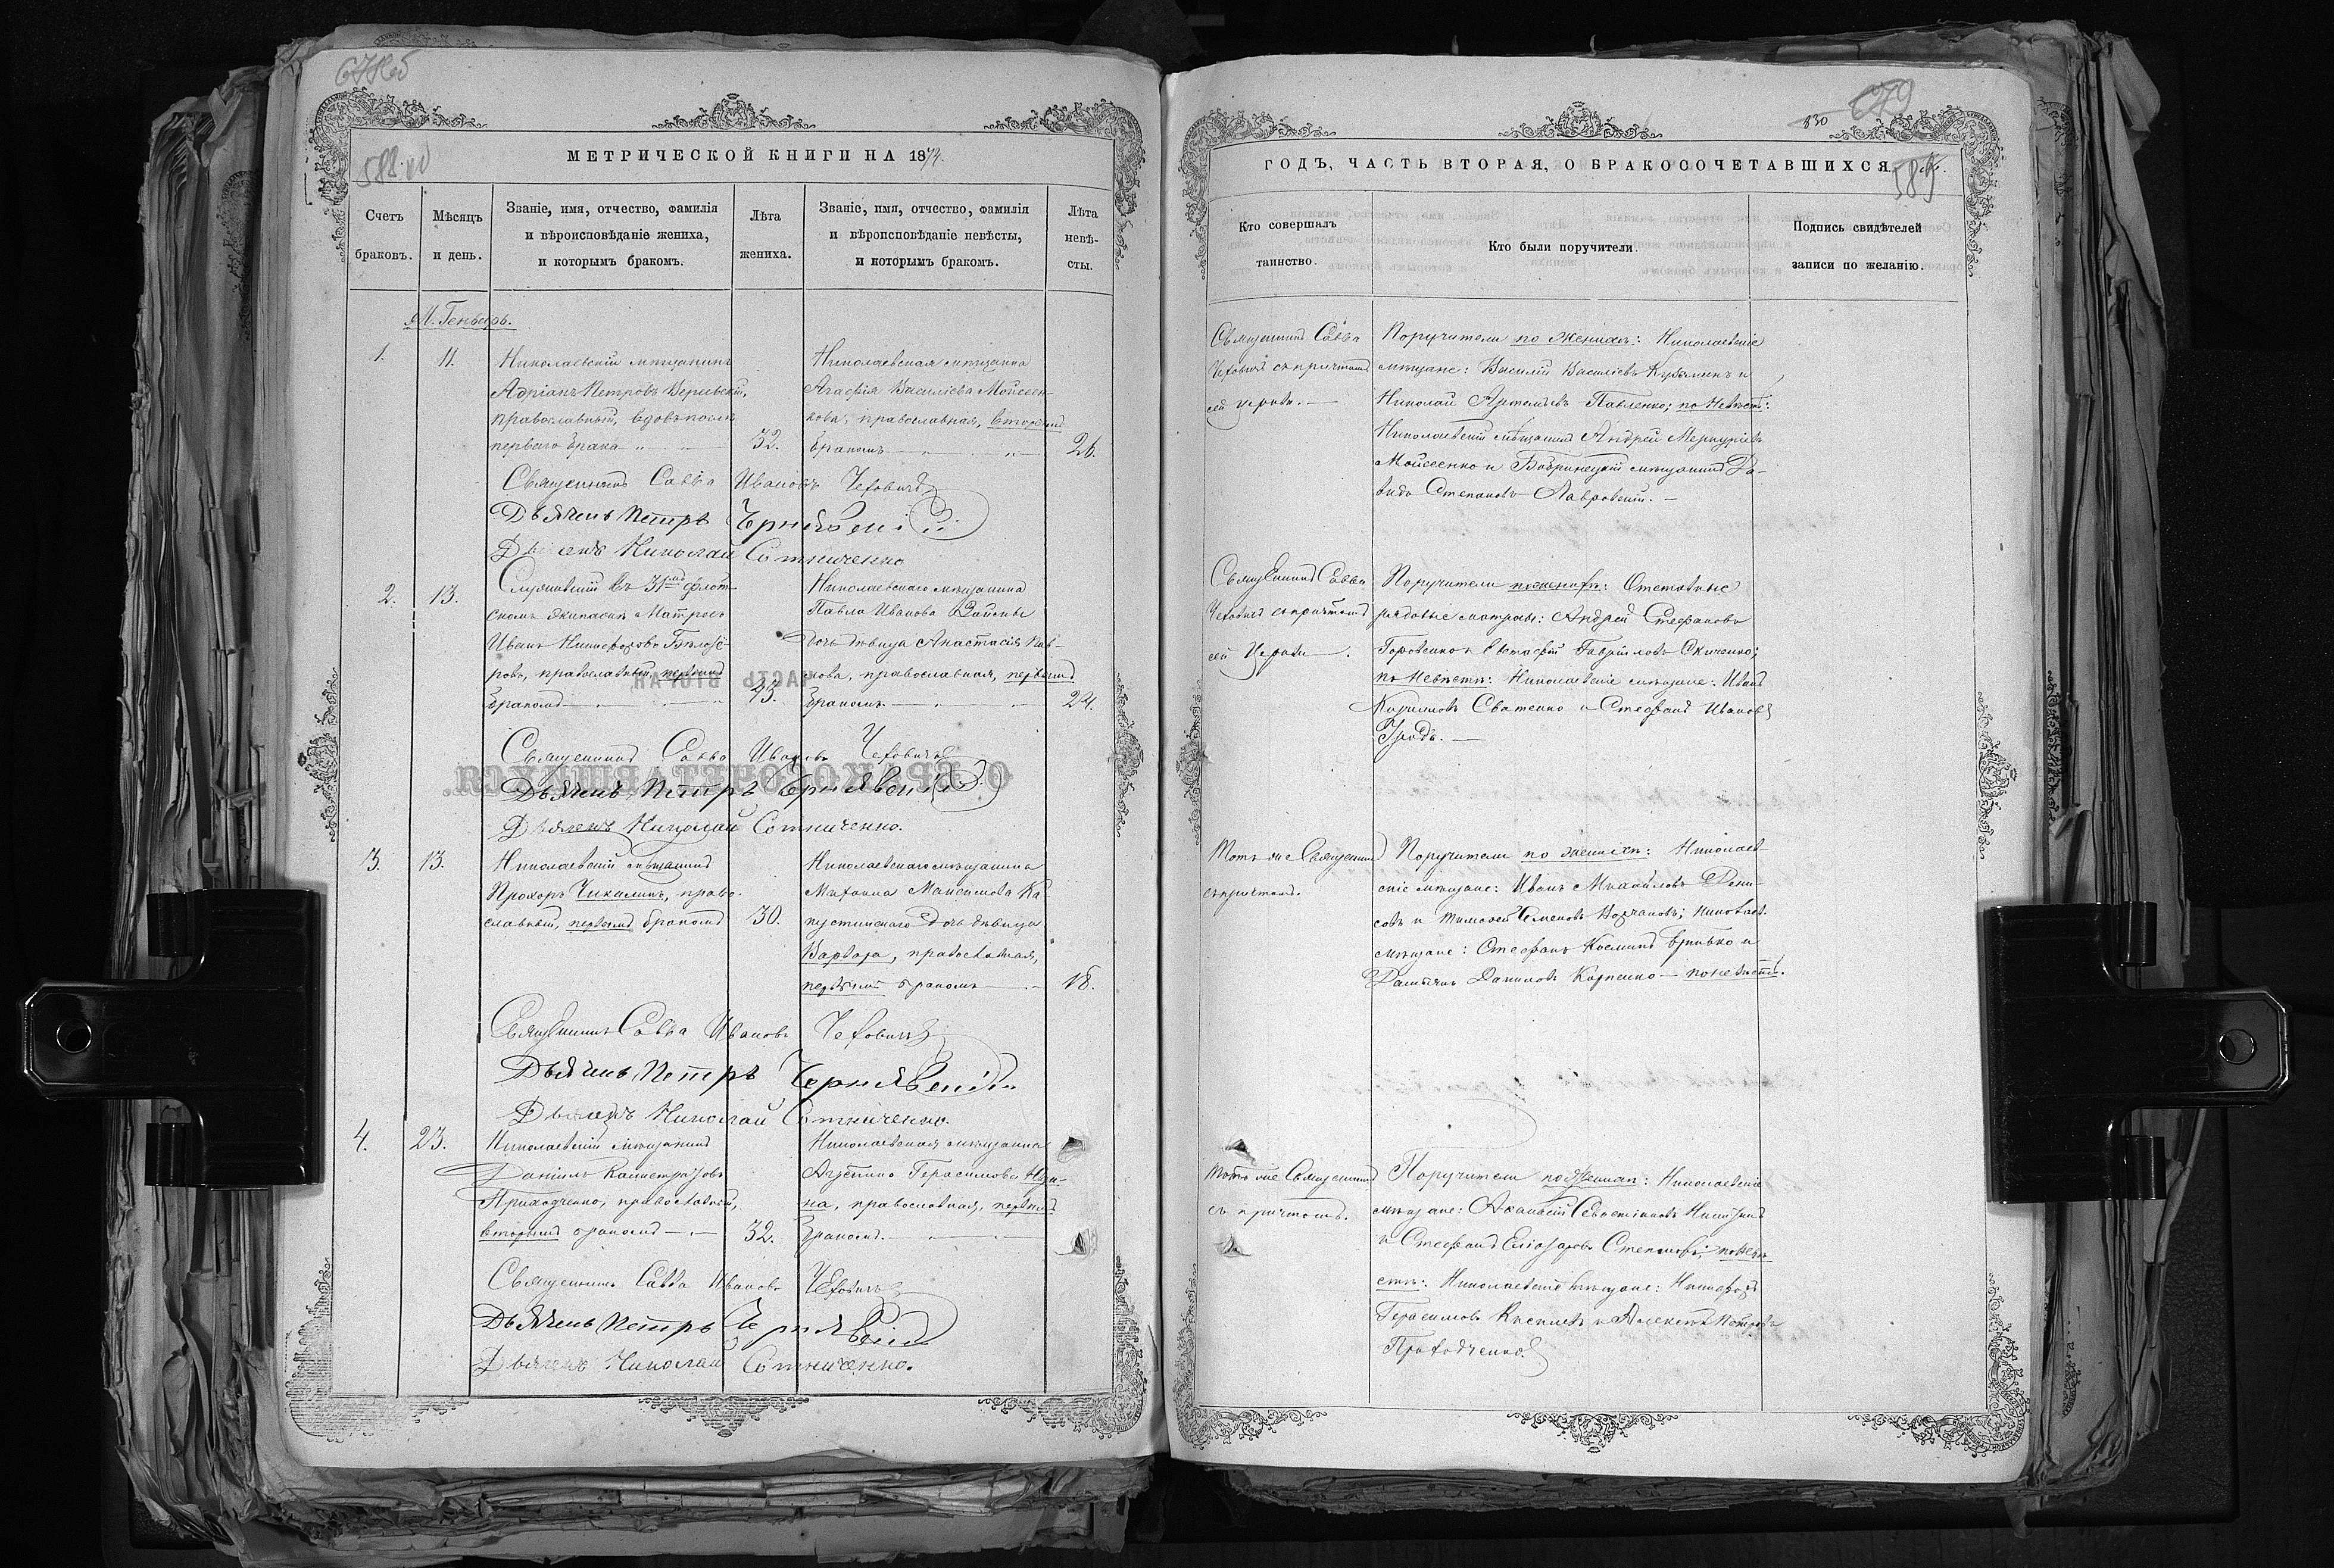 588 об
830
679
589
МЕТРИЧЕСКОЙ КНИГИ НА 1874.
Счетъ браковъ.
Мѣсяцъ и день.
Званіе, имя, отчество, фамилія и вѣроисповѣданіе жениха, и которымъ бракомъ.
Лѣта жениха.
Званіе, имя, отчество, фамилія и вѣроисповѣданіе невѣсты, и которымъ бракомъ.
Лѣта невѣ-сты.
М. Генварь.
1.
11.
Николаевскій мѣщанинъ
Адріанъ Петровъ
православный, вдовъ послѣ
перваго брака
32.
Николаевская мѣщанка
Агафія Василіева Мойсеен-
кова, православная, вторымъ
бракомъ
26.
Священникъ Савва Ивановъ Чеховичъ
Дьячекъ Петръ Чернявскій
Дьячекъ Николай Сотниченко
2.
13.
Служившій въ 31мъ флот-
скомъ экипажѣ Матросъ
Иванъ Никифоровъ Бѣлозе-
ровъ, православный, первымъ
бракомъ
43.
Николаевскаго мѣщанина
Павла Иванова
дочь дѣвица Анастасія Пав-
лова, православная, первымъ
бракомъ.
24.
Священникъ Савва Ивановъ Чеховичъ
Дьячекъ Петръ Чернявскій
Дьячекъ Николай Сотниченко.
3.
13.
Николаевскій мѣщанинъ
Прохоръ Чикалинъ, право-
славный, первымъ бракомъ
30.
Николаевскаго мѣщанина
Михаила Максимова Ка-
пустинскаго дочь дѣвица
Варвара, православная,
первымъ бракомъ
18.
Священникъ Савва Ивановъ Чеховичъ
Дьячекъ Петръ Чернявскій
Дьячекъ Николай Сотниченко.
4.
23.
Николаевскій мѣщанинъ
Даніилъ Калистратовъ
Приходченко, православный,
вторымъ бракомъ
32.
Николаевская мѣщанка
Герасимова
на, православная, первымъ
бракомъ.
Священникъ Савва Ивановъ Чеховичъ
Дьячекъ Петръ Чернявскій
Дьячекъ Николай Сотниченко.
ГОДЪ, ЧАСТЬ ВТОРАЯ, О БРАКОСОЧЕТАВШИХСЯ.
Кто совершалъ таинство.
Кто были поручители.
Подпись свидѣтелей записи по желанію.
Священникъ Савва
Чеховичъ съ причтомъ
сей церкви.
Поручители по женихѣ: Николаевскіе
мѣщане: Василій Василіевъ Кузьминъ и
Николай Артемьевъ Павленко; по невѣстѣ:
Николаевскій мѣщанинъ Андрей Меркуріевъ
Мойсеенко и Бобринецкій мѣщанинъ Да-
видъ Степановъ Лавровскій.
Священникъ Савва
Чеховичъ съ причтомъ
сей Церкви.
Поручители по женихѣ: Отставные
рядовые матросы: Андрей Стефановъ
Горовенко и Евстафій Гавріиловъ
по невѣстѣ: Николаевскіе мѣщане: Иванъ
Кириловъ Сватенко и Стефанъ Ивановъ
Гродъ.
Тотъ же Священникъ
съ причтомъ.
Поручители по женихѣ: Николаев-
скіе мѣщане: Иванъ Михайловъ Дени-
совъ и Тимофей Семеновъ Корчановъ; Николаев.
мѣщане: Стефанъ Косминъ Гривко и
Даміанъ Даниловъ Карпенко — по невѣстѣ.
Тотъ же Священникъ
съ причтомъ.
Поручители по женихѣ: Николаевскіе
мѣщане: Афанасій Севостіановъ Никитинъ
и Стефанъ Еліозаровъ Степановъ; по невѣ-
стѣ: Николаевскіе мѣщане: Никифоръ
Герасимовъ Киселевъ и Алексѣй Петровъ
Приходченко.